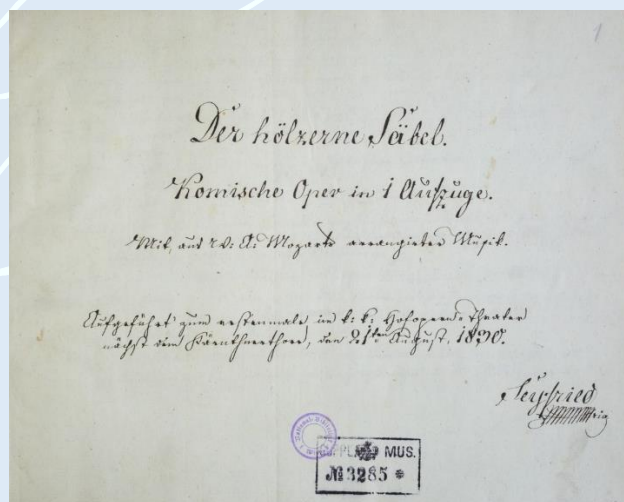 1
Der hölzerne Säbel.
Komische Oper in 1 Aufzuge.
Mit, aus W: A: Mozarts arrangirter Musik.
Aufgeführt zum erstenmale, im k: k: Hofopern-Theater
nächst dem Kärnthnerthore, den 21ten August, 1830.
Seyfried
MUS.
№ 3285 *